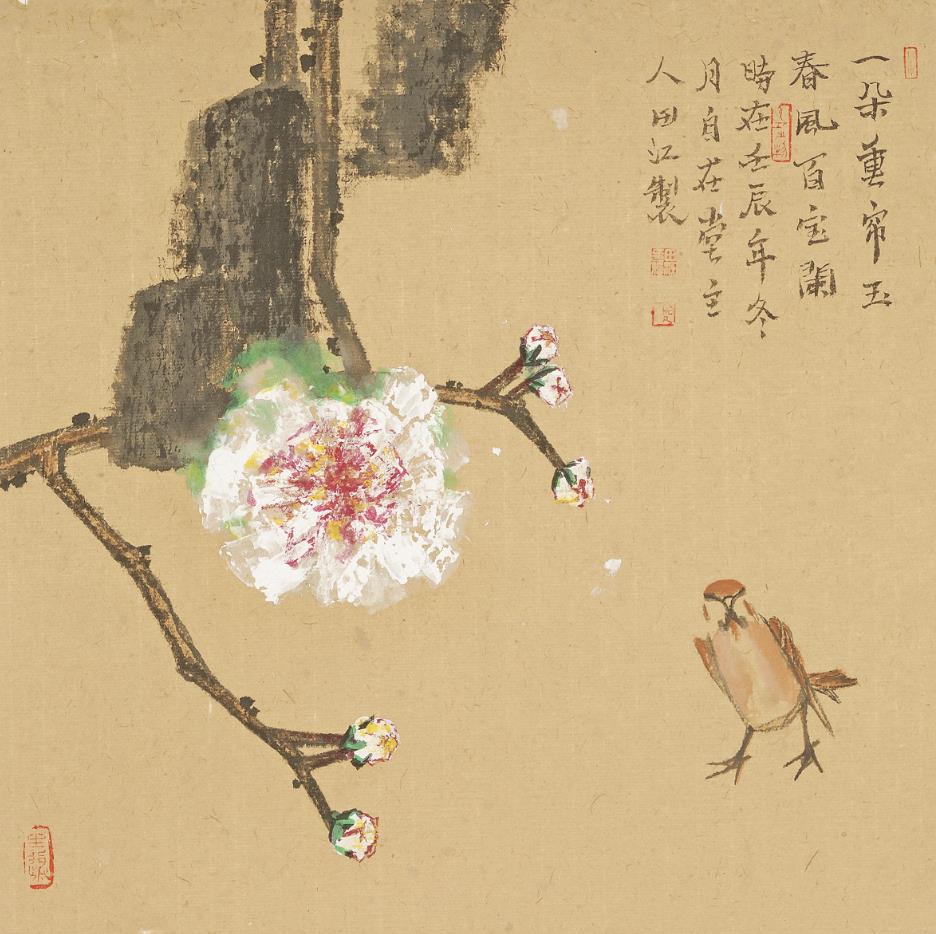 一朵重帘玉
春風百宝闌
時在壬辰年冬
月自在堂主
人田江製